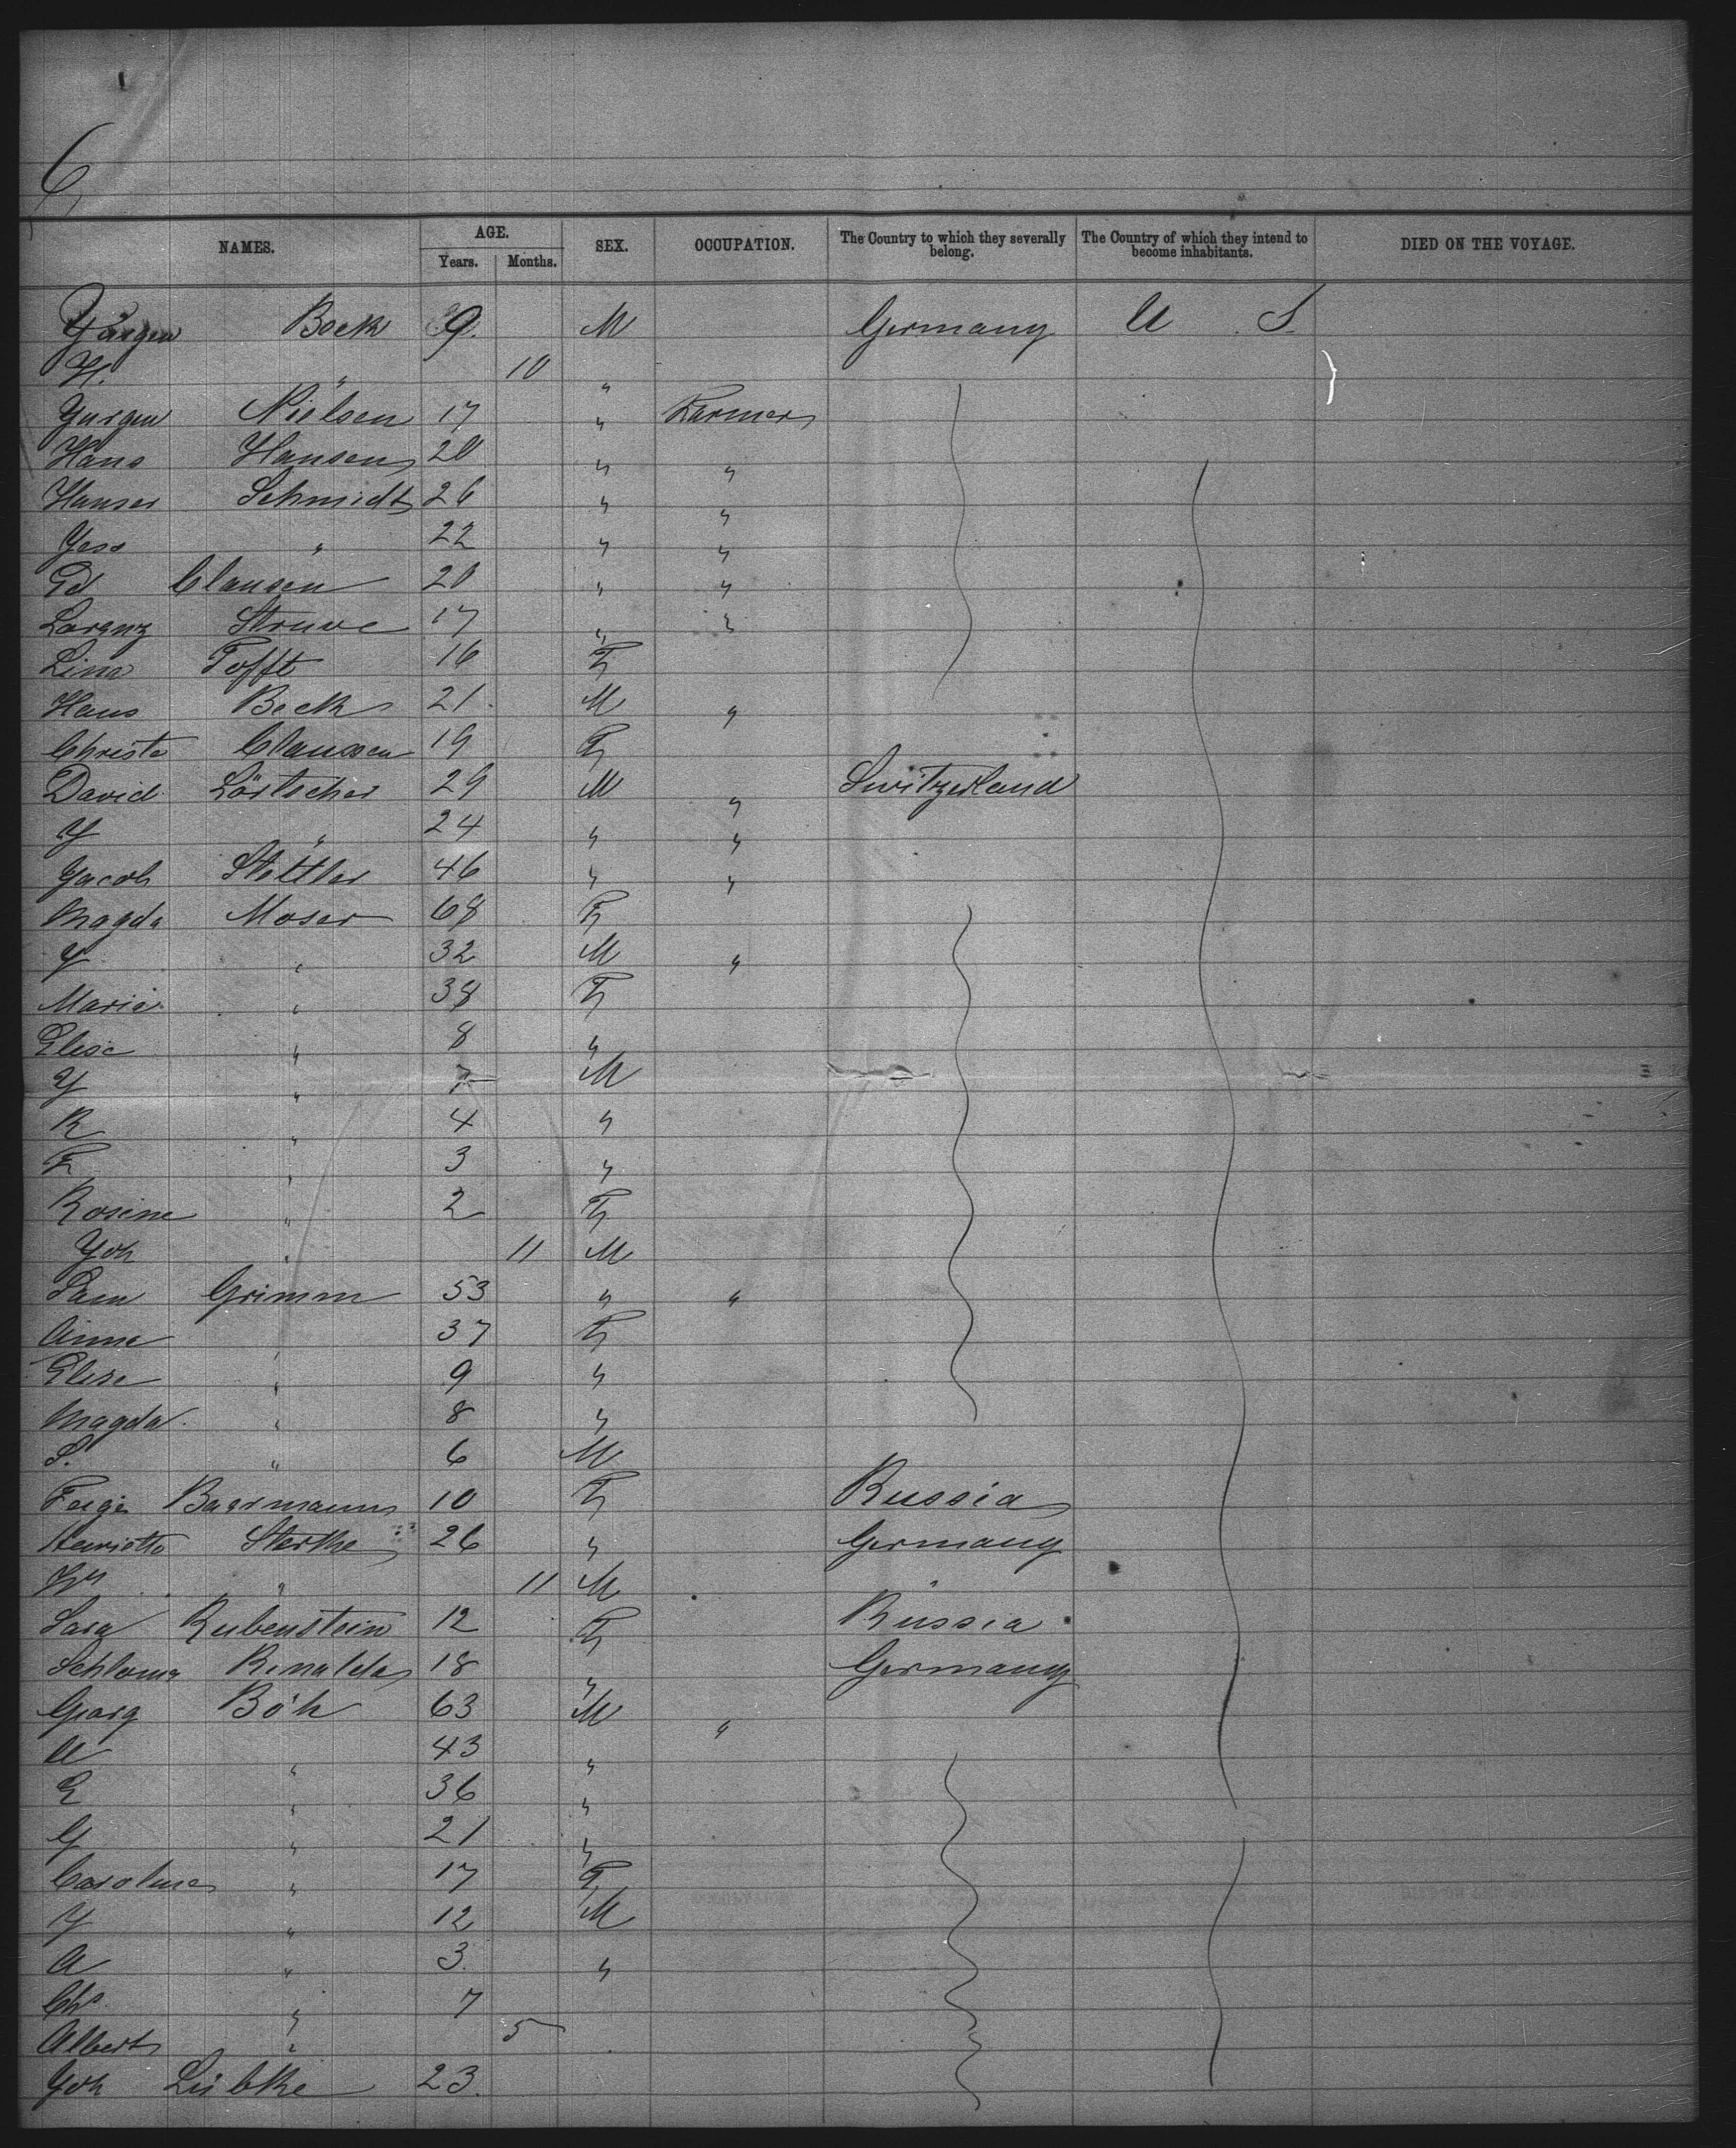 6
NAMES. AGE. SEX. OCCUPATION. The Country to which they severally belong. The Country of which they intend to become inhabitants. DIED ON THE VOYAGE.
Years. Months.
Jurgen Bock 9. M Germany U S
H. " 10 "
Jurgen Nielsen 17 " Farmer
Hans Hansen 20 " "
Hanser Schmidt 26 " "
Jess " 22 " "
Ed Clausen 20 " "
Lorenz Struve 17 " "
Lina Tofft 16 F
Hans Beck 21. M "
Christe Claussen 19 F
David Lörtscher 29 M " Switzerland
J " 24 " "
Jacob Stettler 46 " "
Magda Moser 68 F
J " 32 M "
Marie " 38 F
Elise " 8 "
J " 7 M
R " 4 "
F " 3 "
Rosine " 2 F
Joh " 11 M
Sam Grimm 53 " "
Anna " 37 F
Elise " 9 "
Magda " 8 "
S. " 6 M
Feige Baermann 10 F Russia
Henriette Sterke 26 " Germany
" 11 M "
Sara Rubenstein 12 F Russia
Schloma 18 " Germany
Georg Böh 63 M "
U " 43 "
E " 36 "
G " 21 "
Caroline " 17 F
J " 12 M
A " 3. "
Chs " 7
Albert " 5
Joh Lübke 23.